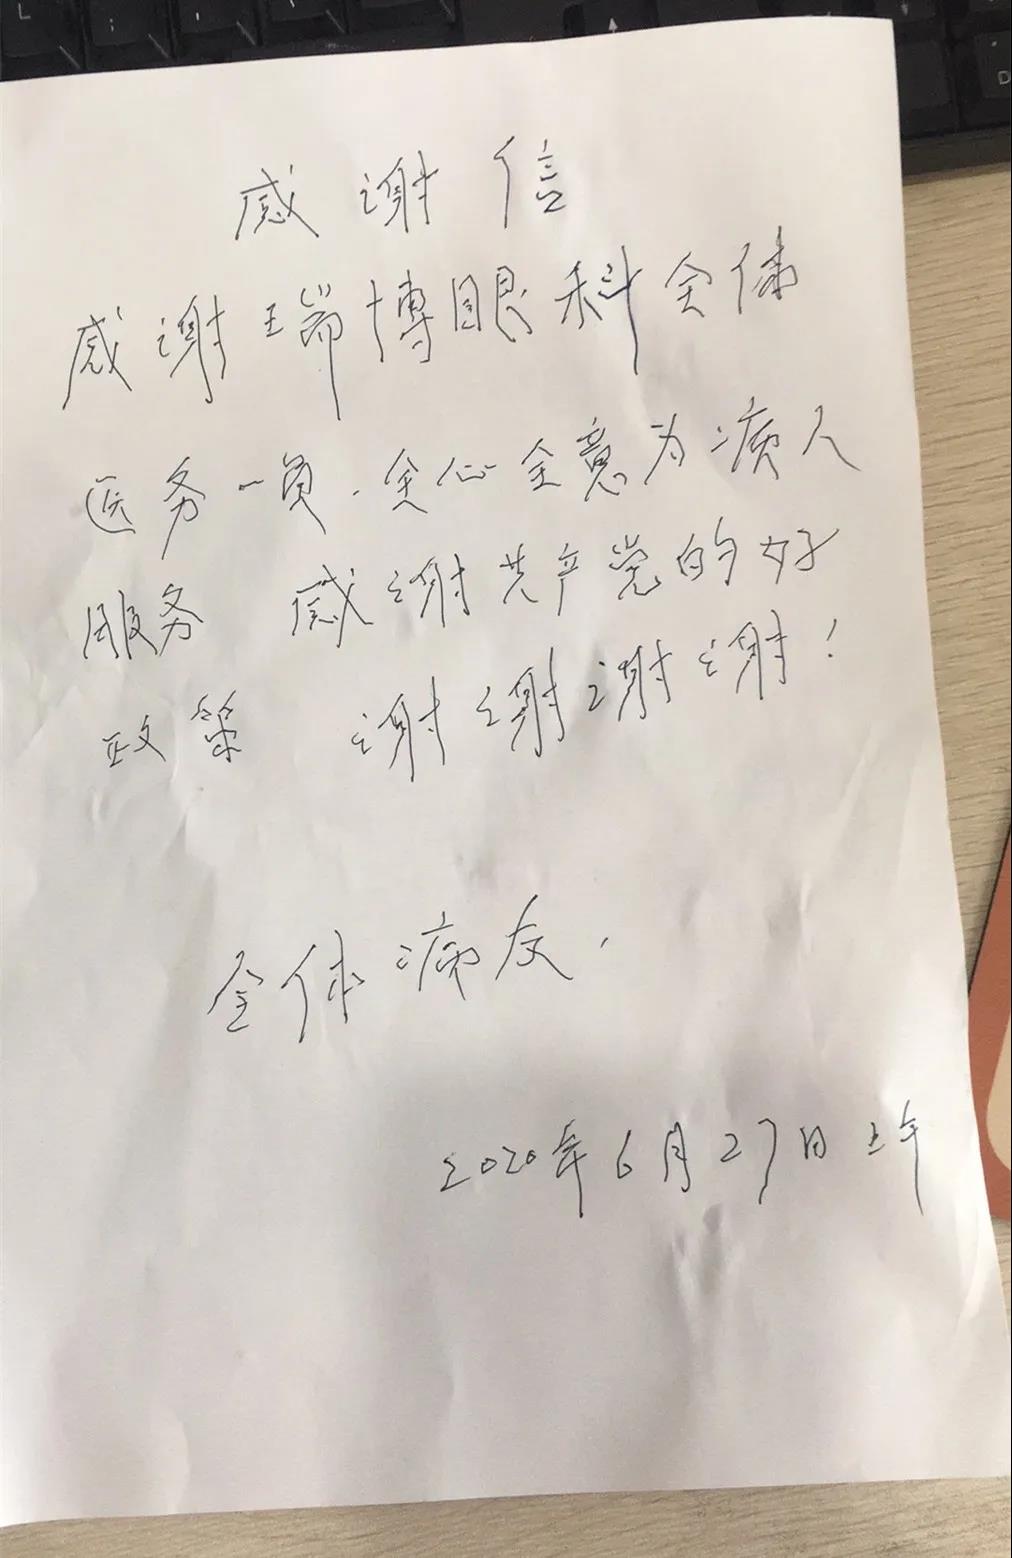 感谢信
感谢瑞博眼科全体
医务一员.全心全意为病人
服务 感谢共产党的好
政策 谢谢谢谢!
全体病友.
2020年6月27日上午